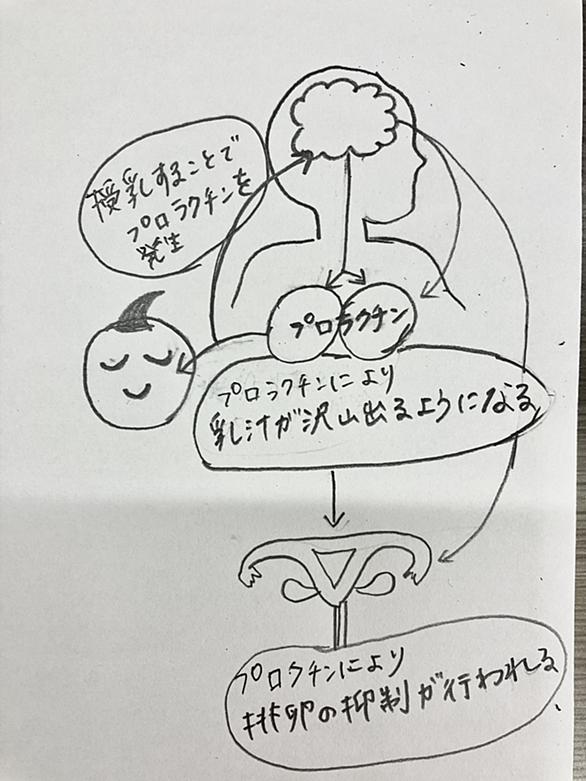 授乳することで
プロラクチンを
発生
プロラクチン
プロラクチンにより
乳汁が沢山出るようになる
プロクチンにより
排卵の抑制が行われしる